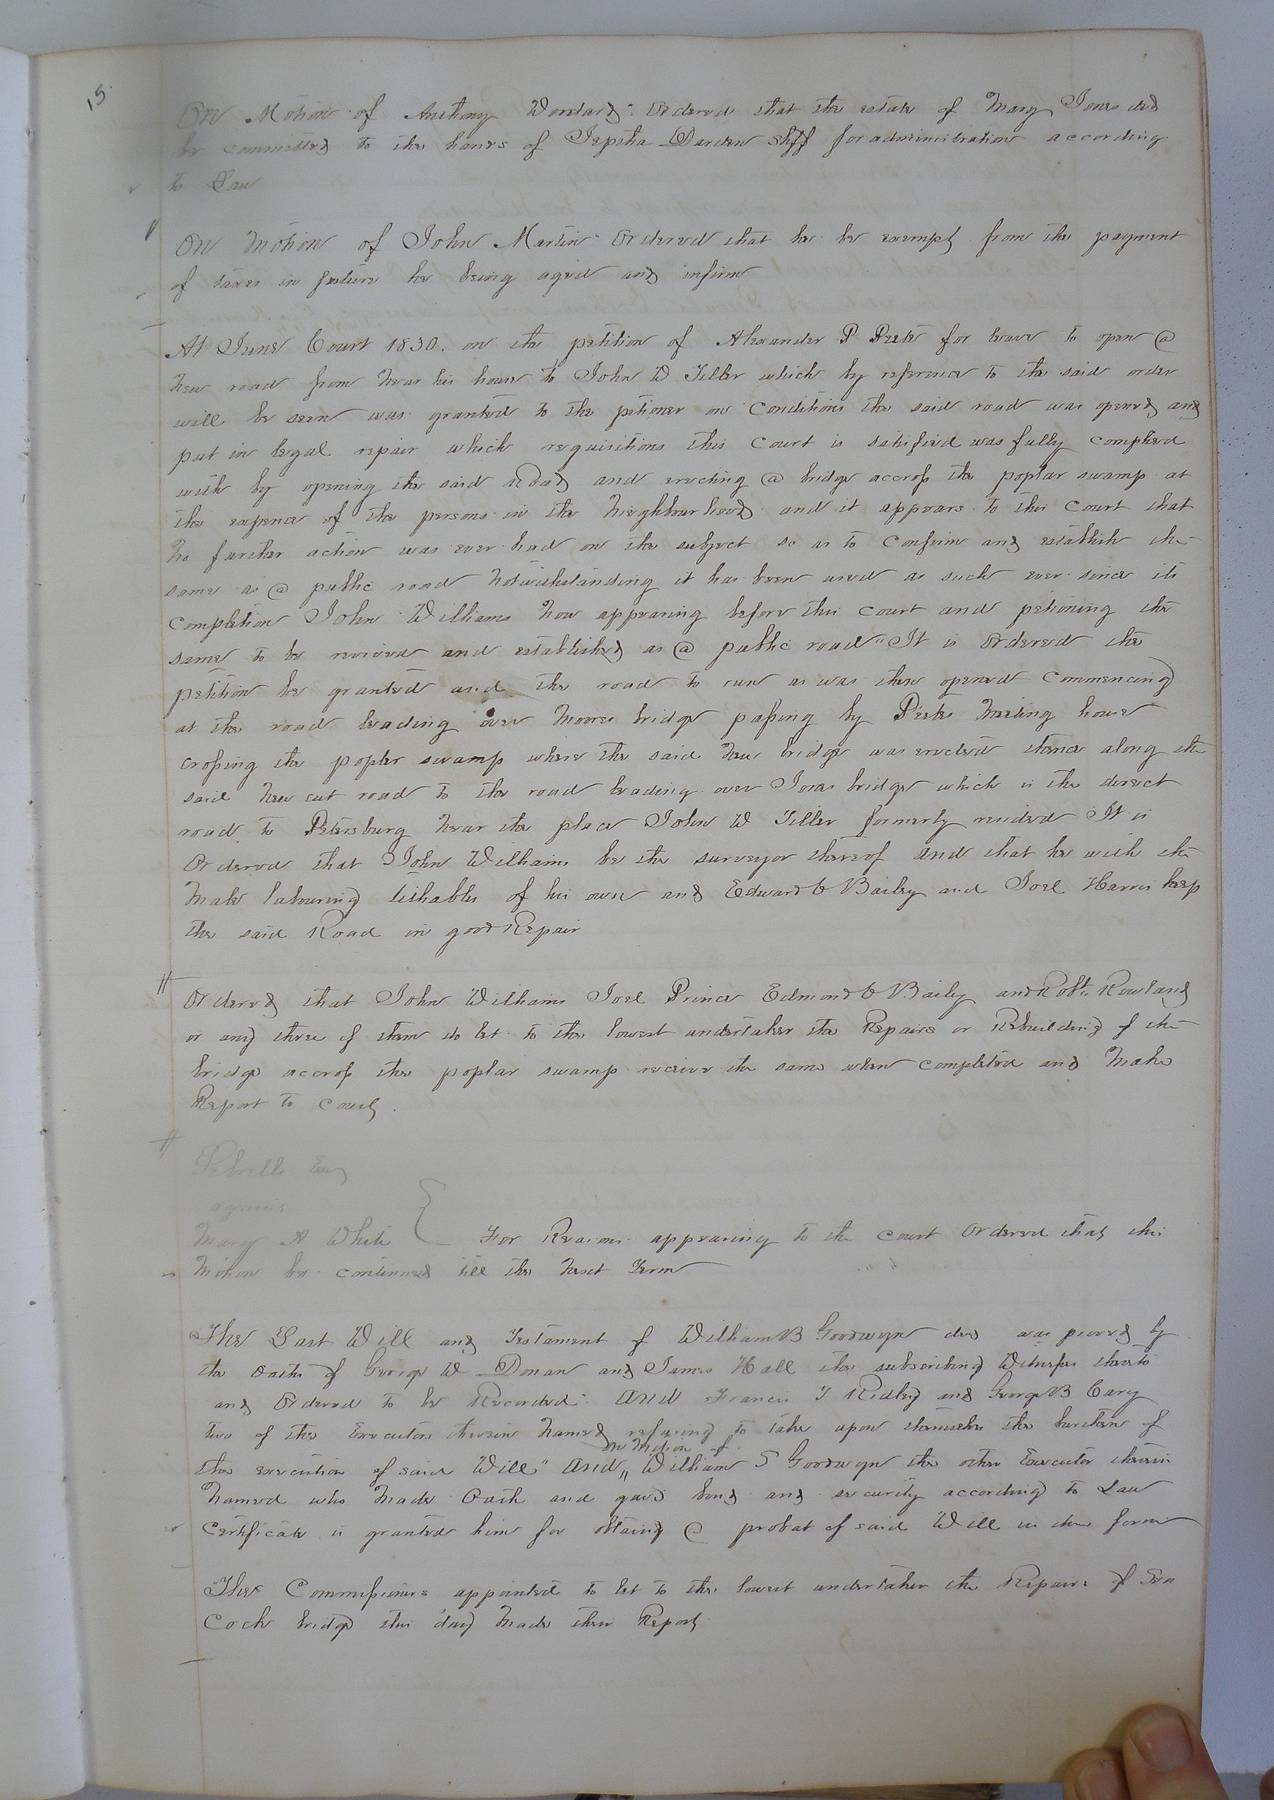 15
On Motion of Anthony Woodard Ordered that the estate of Mary Jones decd
be committed to the hands of Jeptha Darden Shff for administration according
to Law
On Motion of John Martin Ordered that he be exempt from the payment
of taxes in future he being aged and infirm
At June Court 1830. on the petition of Alexander P Peete for leave to open @
New road from Near his house to John W Tiller which by reference to the said order
will be seen was granted to the petioner on Conditions the said road was opened and
put in legal repair which requisitions this Court is satisfied was fully complied
with by opening the said Road and erecting @ bridge accross the poplar swamp at
the expence of the persons in the Neighbourhood and it appears to this Court that
No further action was ever had on the subject so as to Confirm and establish the
same as @ public road Notwithstanding it has been used as such ever since its
completion John Williams Now appearing before this Court and petioning the
same to be reviewed and established as @ public road" It is Ordered the
petition be granted and the road to run as was then opened Commencing
at the road leading over Moores bridge passing by Peetes Meeting house
crossing the popler swamp where the said New bridge was erected thence along the
said New cut road to the road leading over Jones bridge which is the direct
road to Petersburg Near the place John W Tiller formerly resided It is
Ordered that John Williams be the surveyor thereof and that he with the
Male labouring tithables of his own and Edward C Bailey and Joel Harris keep
the said Road in good Repair
Ordered that John Williams Joel Prince Edmond C Baily and Robt. Rowland
or any three of them do let to the lowest undertaker the Repairs or Rebuilding of the
bridge accross the poplar swamp receive the same when completed and Make
Report to Court.
against
Mary A White } For Reasons appearing to the court Ordered that this
Motion be continued till the Next Term
The Last Will and Testament of William B Goodwyn decd was proved by
the oaths of George W Donan and James Hall the subscribing Witnesses thereto
and Ordered to be Recorded: And Francis T Ridley and George B Cary
two of the Executors therein Named refusing to take upon themselves the burthen of
on Motion of
the execution of said Will" And " William S Goodwyn the other Executor therein
Named who Made Oath and gave bond and security according to Law
Certificate is granted him for obtaing @ probat of said Will in due form
The Commissioners appointed to let to the lowest undertaker the Repairs of
Cock bridge this day Made their Report